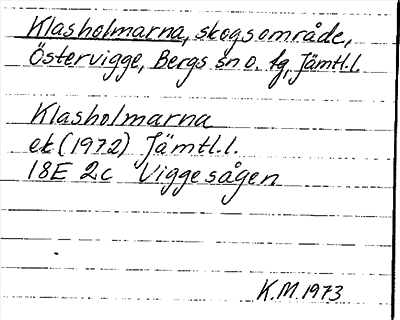 Klasholmarna, skogsområde,
Östervigge, Bergs sn o. fg, Jämtl.l.
Klasholmarna
ek (1972) Jämtl.l.
18E 2c Viggesågen
K.M. 1973